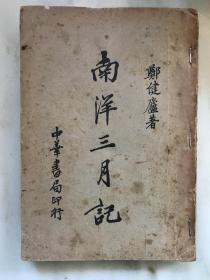 鄭健廬著
南洋三月記
中華書局印行